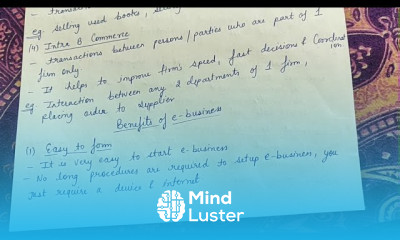 - transaction
eg: selling used books,
(4) Intra B Commerce
- transactions between persons/parties who are part of 1
firm only
- It helps to improve firm's speed, fast decisions &
eg Interaction between any 2 departments of 1 firm,
placing order to supplier
Benefits of e-business
(1) Easy to form
- It is very easy to start e-business
- No long procedures are required to setup e-business, you
just require a device & internet
Mind
Luster